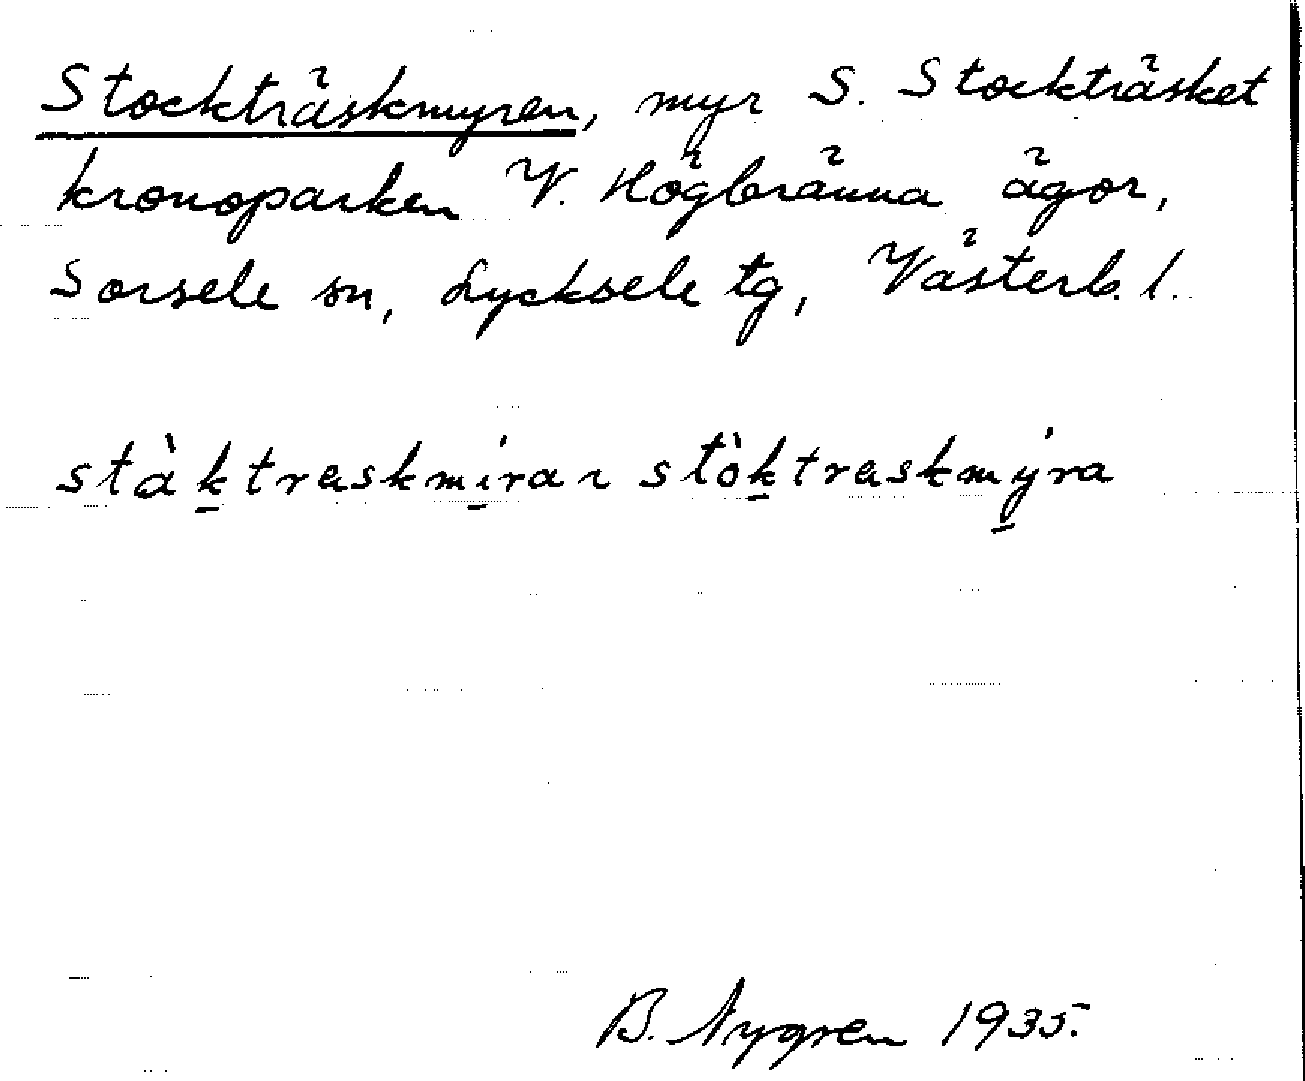 Stockträskmyren, myr S. Stockträsket
kronoparken V. Högbränna ägor,
Sorsele sn, Lycksele tg, Västerb. l.
stàktraskmíra ~ stòktraskmýra
B. Nygren 1935.